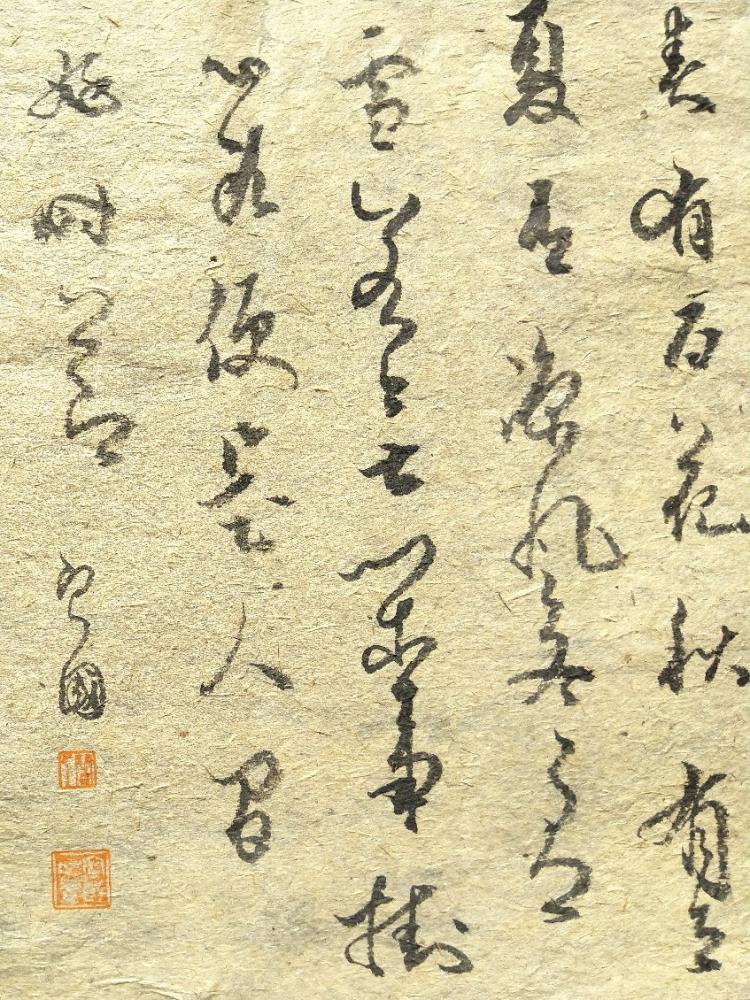 春有百花秋有月
夏有涼風冬有
雪若無閑事掛
心頭便是人間
好時節 國